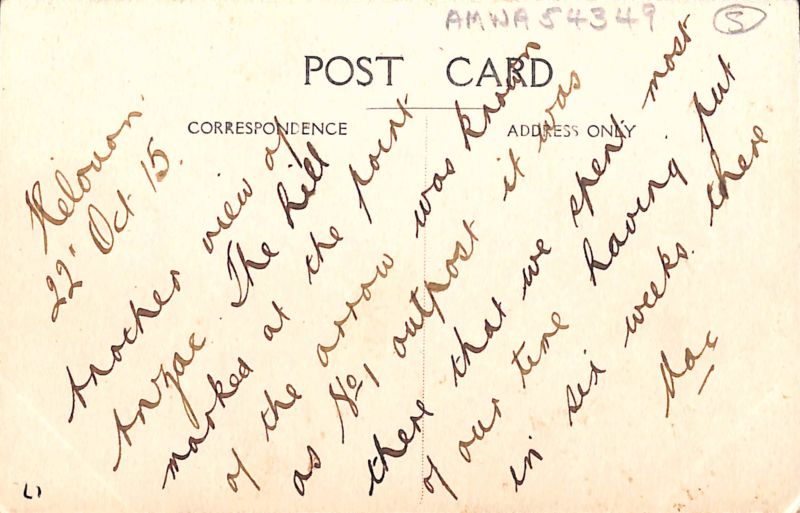 AMWA54349 S
POST CARD
CORRESPONDENCE
ADDRESS ONLY
Helouan.
22. Oct 15.
Another view of
Anzac. The hill
marked at the point
of the arrow was known
as No 1 outpost it was
there that we spent most
of our time having put
in six weeks there
Mac